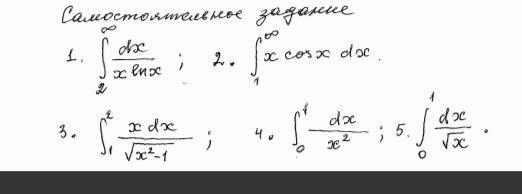 Самостоятельное задание
1. ∫₂^∞ dx / (x ln x) ; 2. ∫₁^∞ x cos x dx.
3. ∫₁² x dx / √(x²-1) ; 4. ∫₀¹ dx / x² ; 5. ∫₀¹ dx / √x .